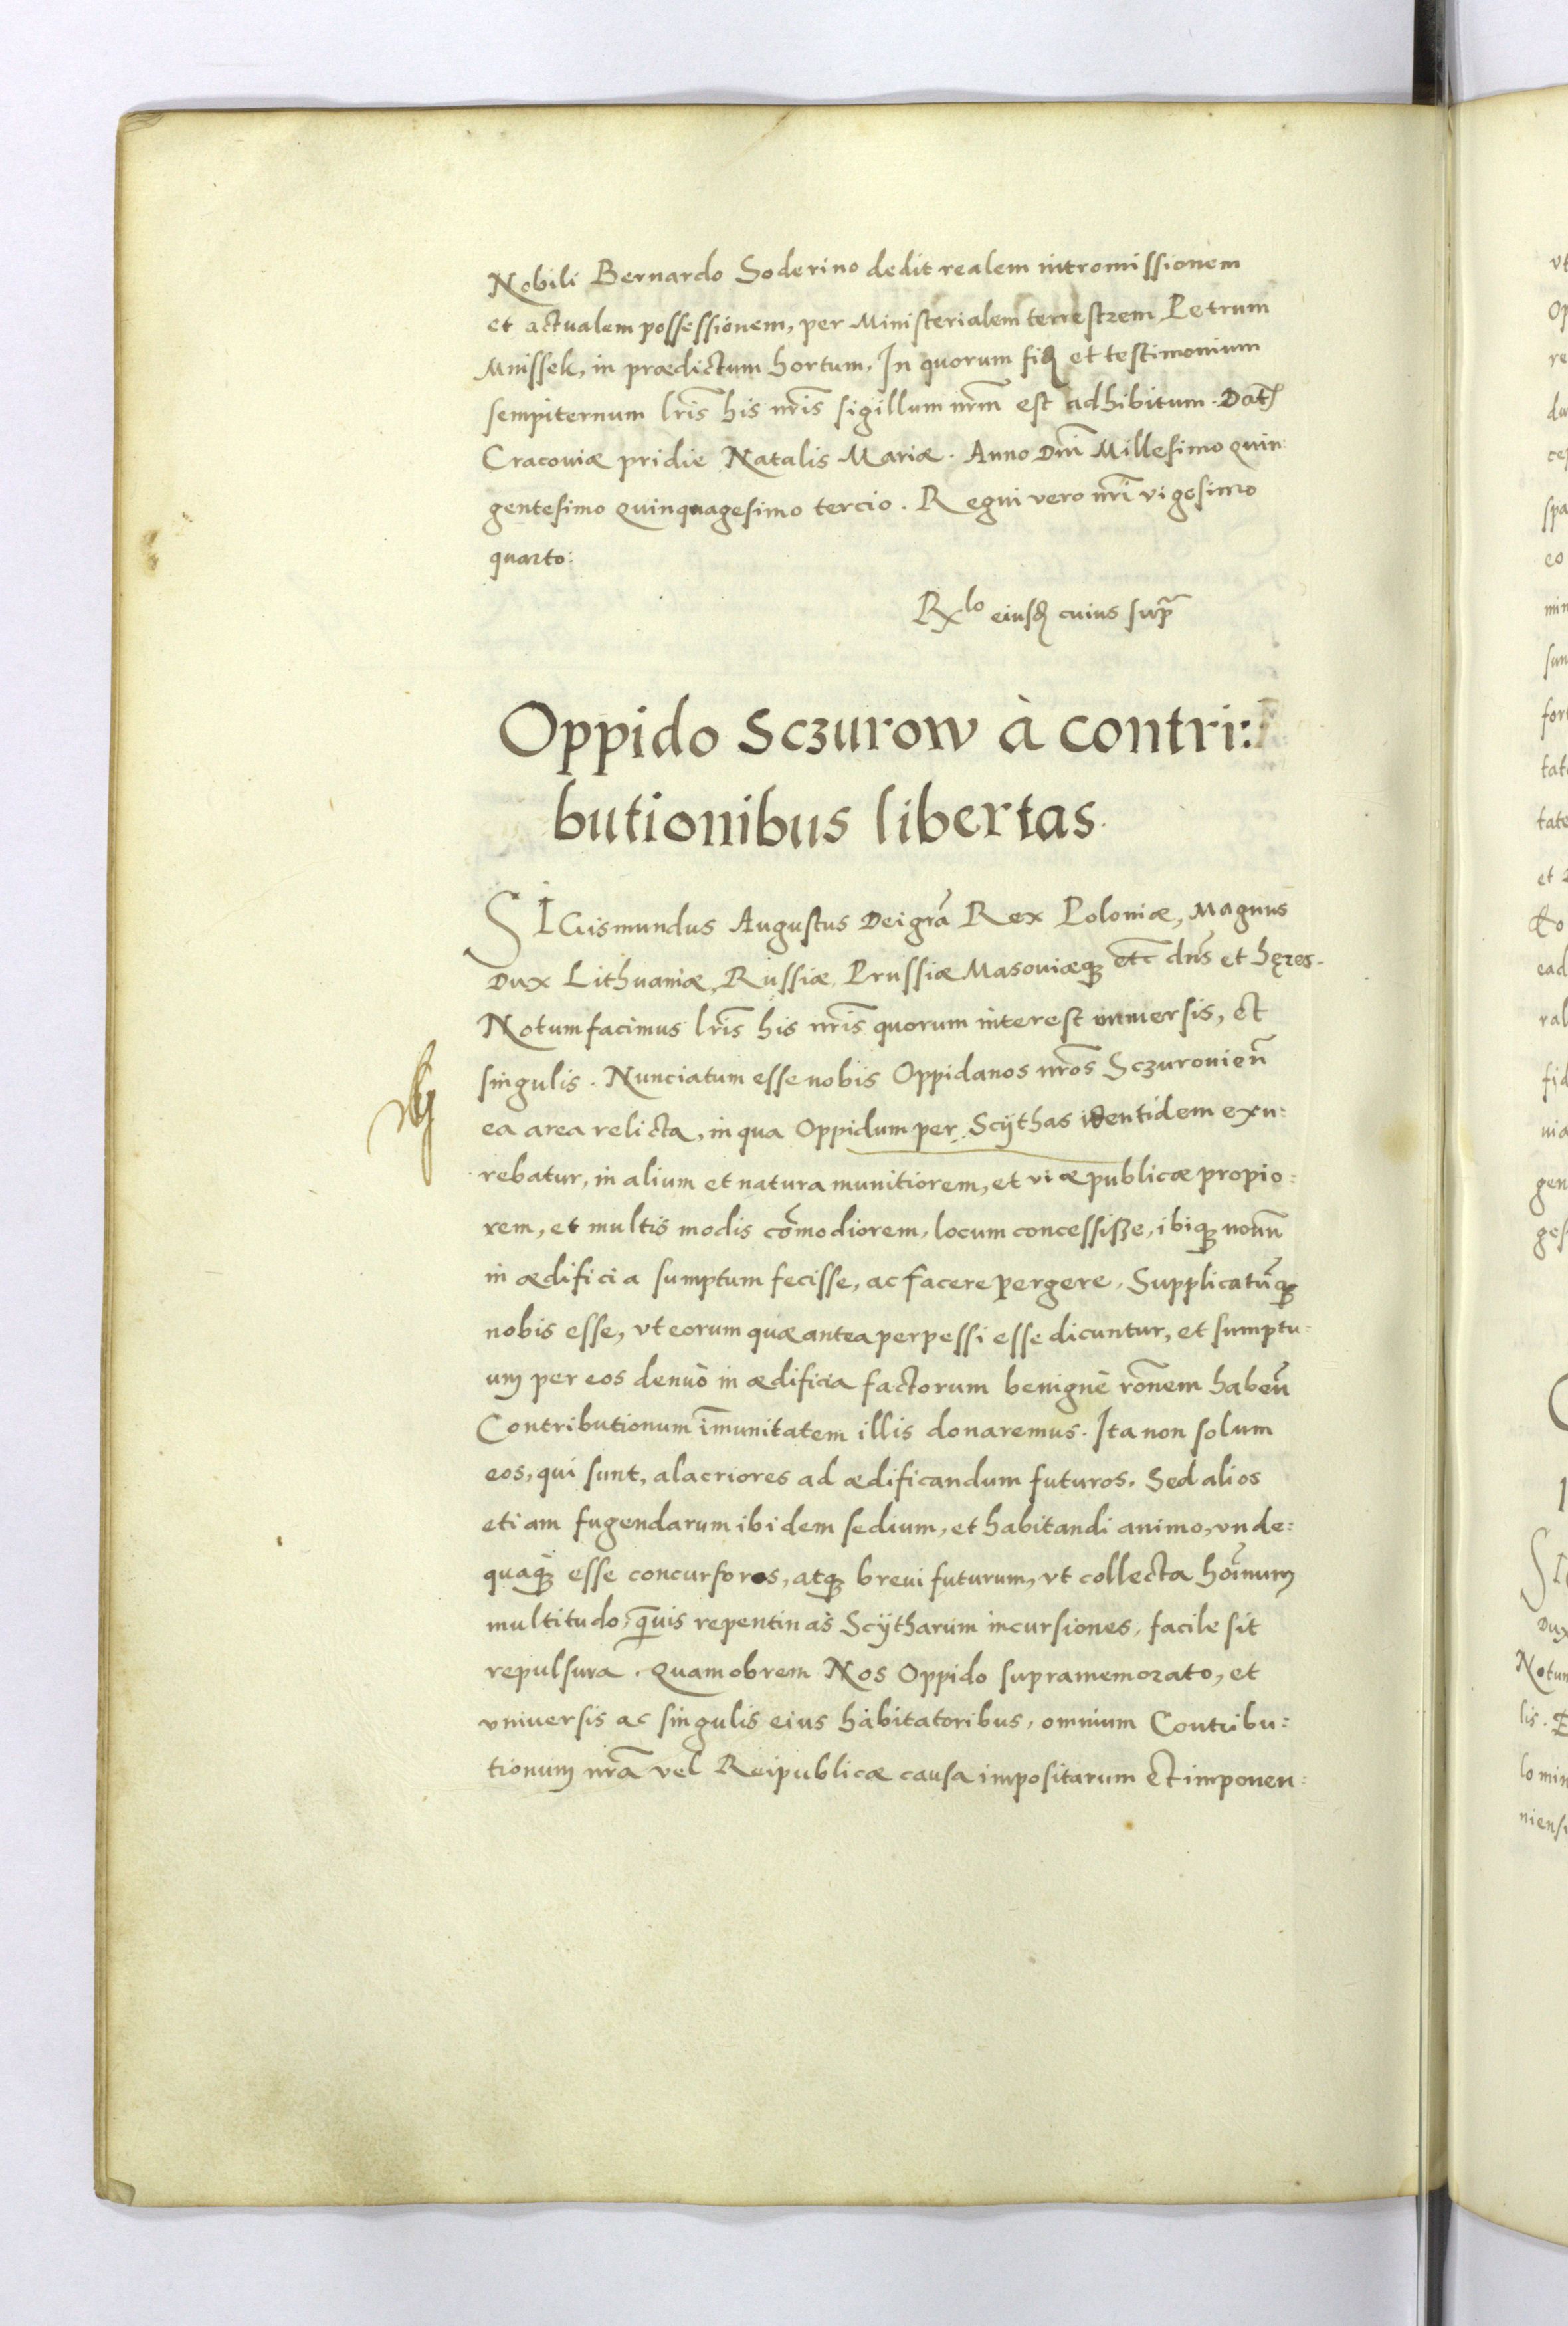 Nobili Bernardo Soderino dedit realem intromissionem
et actualem possessionem, per Ministerialem terrestrem Petrum
Mnissek, in prædictum hortum. In quorum fiđ et testimonium
sempiternum lr̃is his nr̃is sigillum nr̃m est adhibitum. Dat̃
Cracouiæ pridie Natalis Mariæ. Anno Dñi Millesimo quin:
gentesimo quinquagesimo tercio. Regni vero nr̃i vigesimo
quarto:
Rx lo eiusđ cuius supr̃a
Oppido Sczurow à contri:
butionibus libertas.
SIGismundus Augustus Dei gr̃a Rex Poloniæ, Magnus
Dux Lithuaniæ, Russiæ, Prussiæ Masouiæq; etc̃ dñs et hęres.
Notum facimus lr̃is his nr̃is quorum interest vniuersis, et
singulis. Nunciatum esse nobis Oppidanos nr̃os Sczurouieñ
ea area relicta, in qua Oppidum per Scÿthas identidem exu:
rebatur, in alium et natura munitiorem, et viæ publicæ propio:
rem, et multis modis com̃odiorem, locum concessisse, ibiq; nouũ
in ædificia sumptum fecisse, ac facere pergere. Supplicatũq;
nobis esse, vt eorum quæ antea perpessi esse dicuntur, et sumptu:
um per eos denuò in ædificia factorum benignè rõnem habeñ
Contributionum im̃unitatem illis donaremus. Ita non solum
eos, qui sunt, alacriores ad ædificandum futuros. Sed alios
etiam fugendarum ibidem sedium, et habitandi animo, vnde:
quaq; esse concursores, atq; breui futurum, vt collecta hõinum
multitudo, q̃uis repentinas Scÿtharum incursiones, facile sit
repulsura. Quamobrem Nos Oppido supramemorato, et
vniuersis ac singulis eius habitatoribus, omnium Contribu:
tionum nr̃a vel Reipublicæ causa impositarum et imponen: